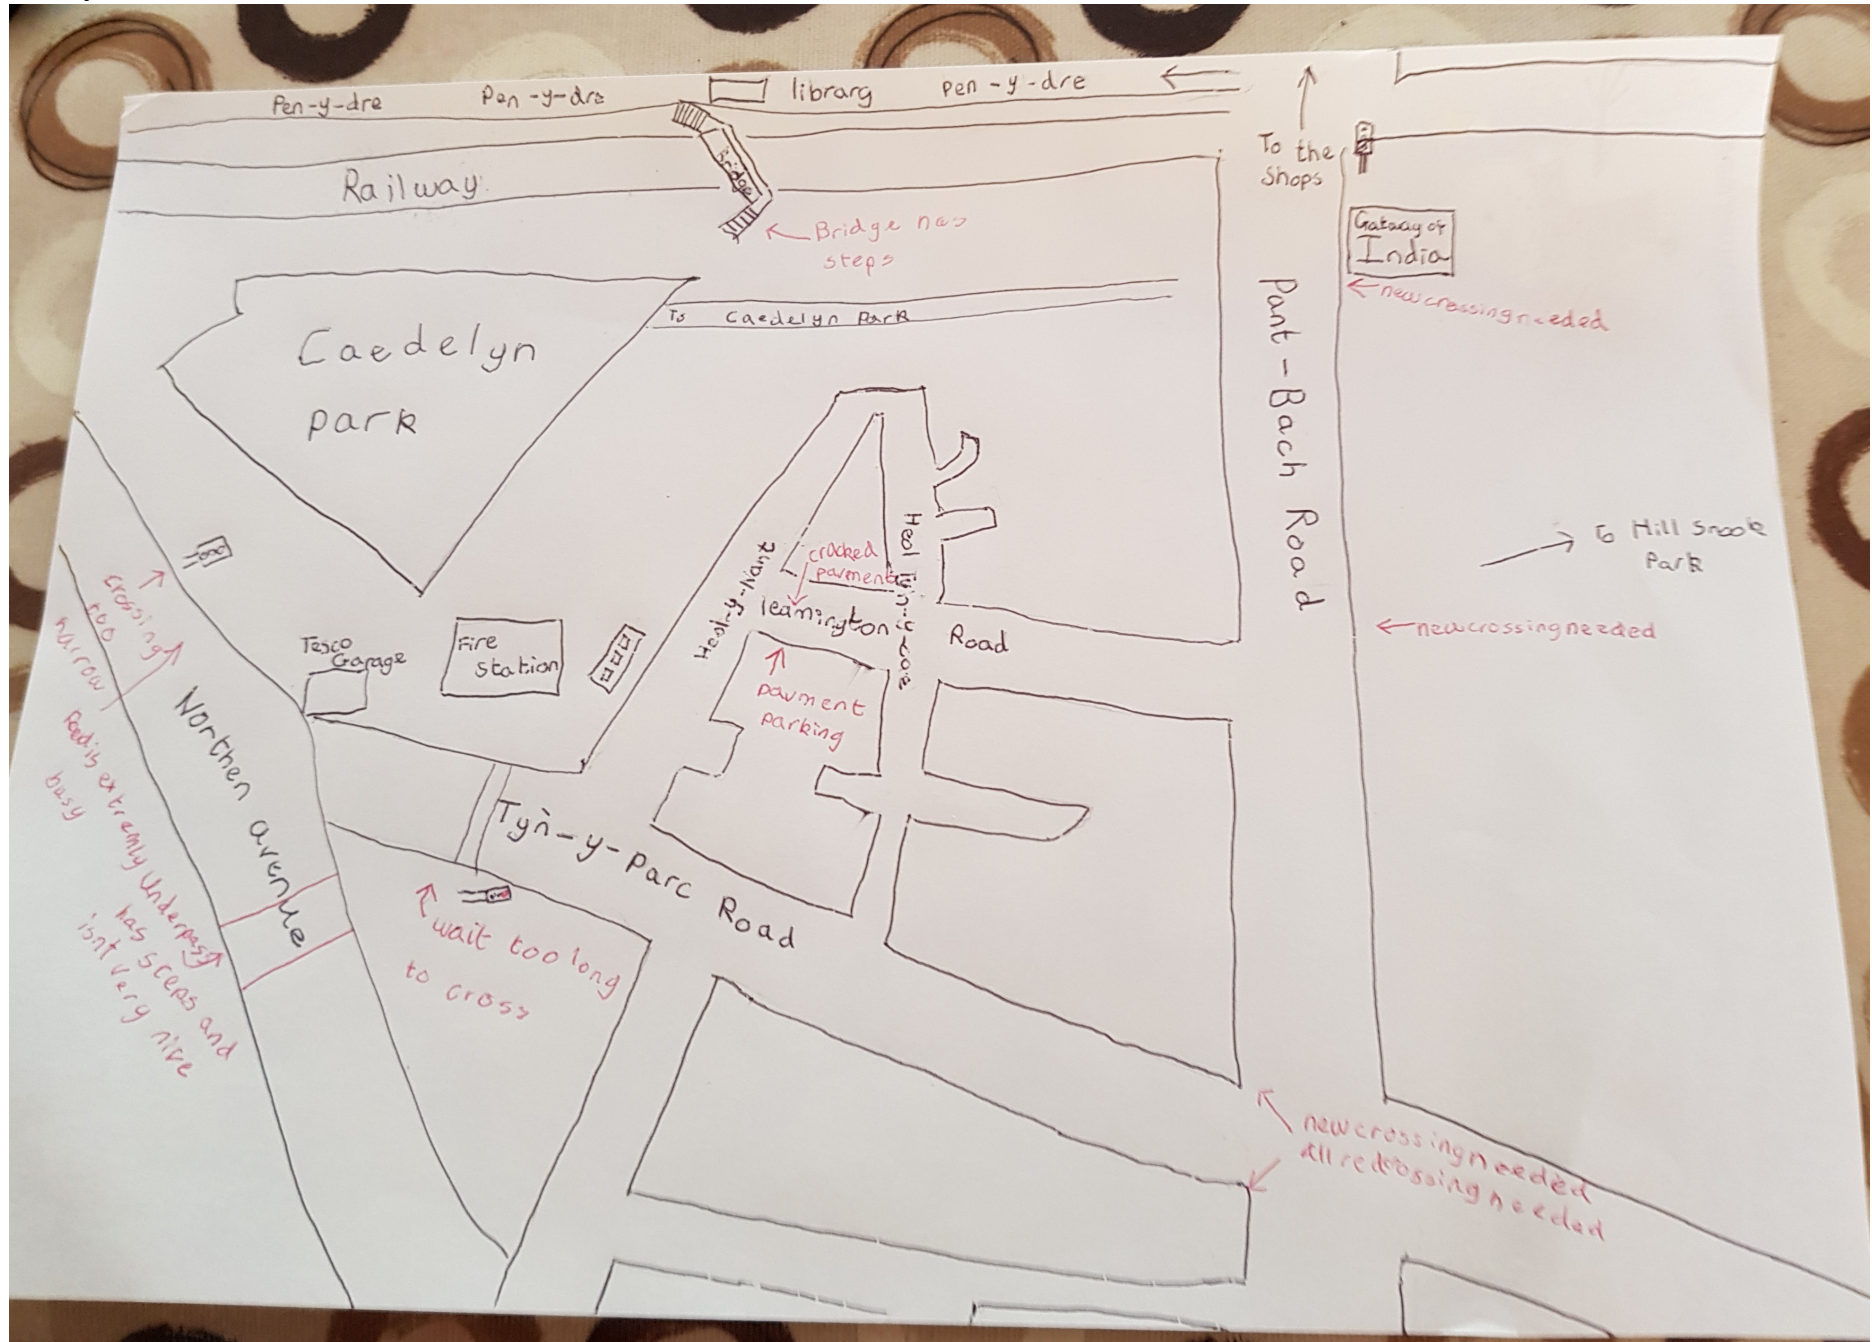 Pen-y-dre
Pen-y-dre
library
Pen-y-dre
To the
Shops
Railway
Bridge
Bridge has
steps
Gataay of
India
new crossing needed
To Caedelyn Park
Caedelyn
Park
Pant-Bach Road
To Hill Snook
Park
new crossing needed
cracked
pavment
Heol-y-Nant
leamington Road
pavment
parking
Tesco
Garage
Fire
station
crossing
too
narrow
Northen avenue
Road is extremly
busy
Underpass
has steps and
isnt very nice
Tyn-y-parc Road
wait too long
to cross
new crossing needed
All red crossing needed